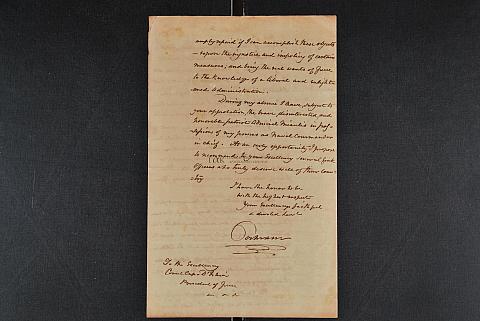 amply repaid if I can accomplish these objects
— expose the injustice and impolicy of certain
measures; and bring the real wants of Greece
to the knowledge of a liberal and enlight-
ened administration.
During my absence I leave, subject to
your approbation, the brave, disinterested, and
honorable patriot Admiral Miaulis in pos-
session of my powers as Naval Commander
in chief. At an early opportunity I propose
to recommend to your Excellency several
officers who truly deserve well of their coun-
try
I have the honor to be
with the highest respect
Your Excellency's faithful
& devoted
Cochrane
To His Excellency
Count Capo D'Istria
President of Greece